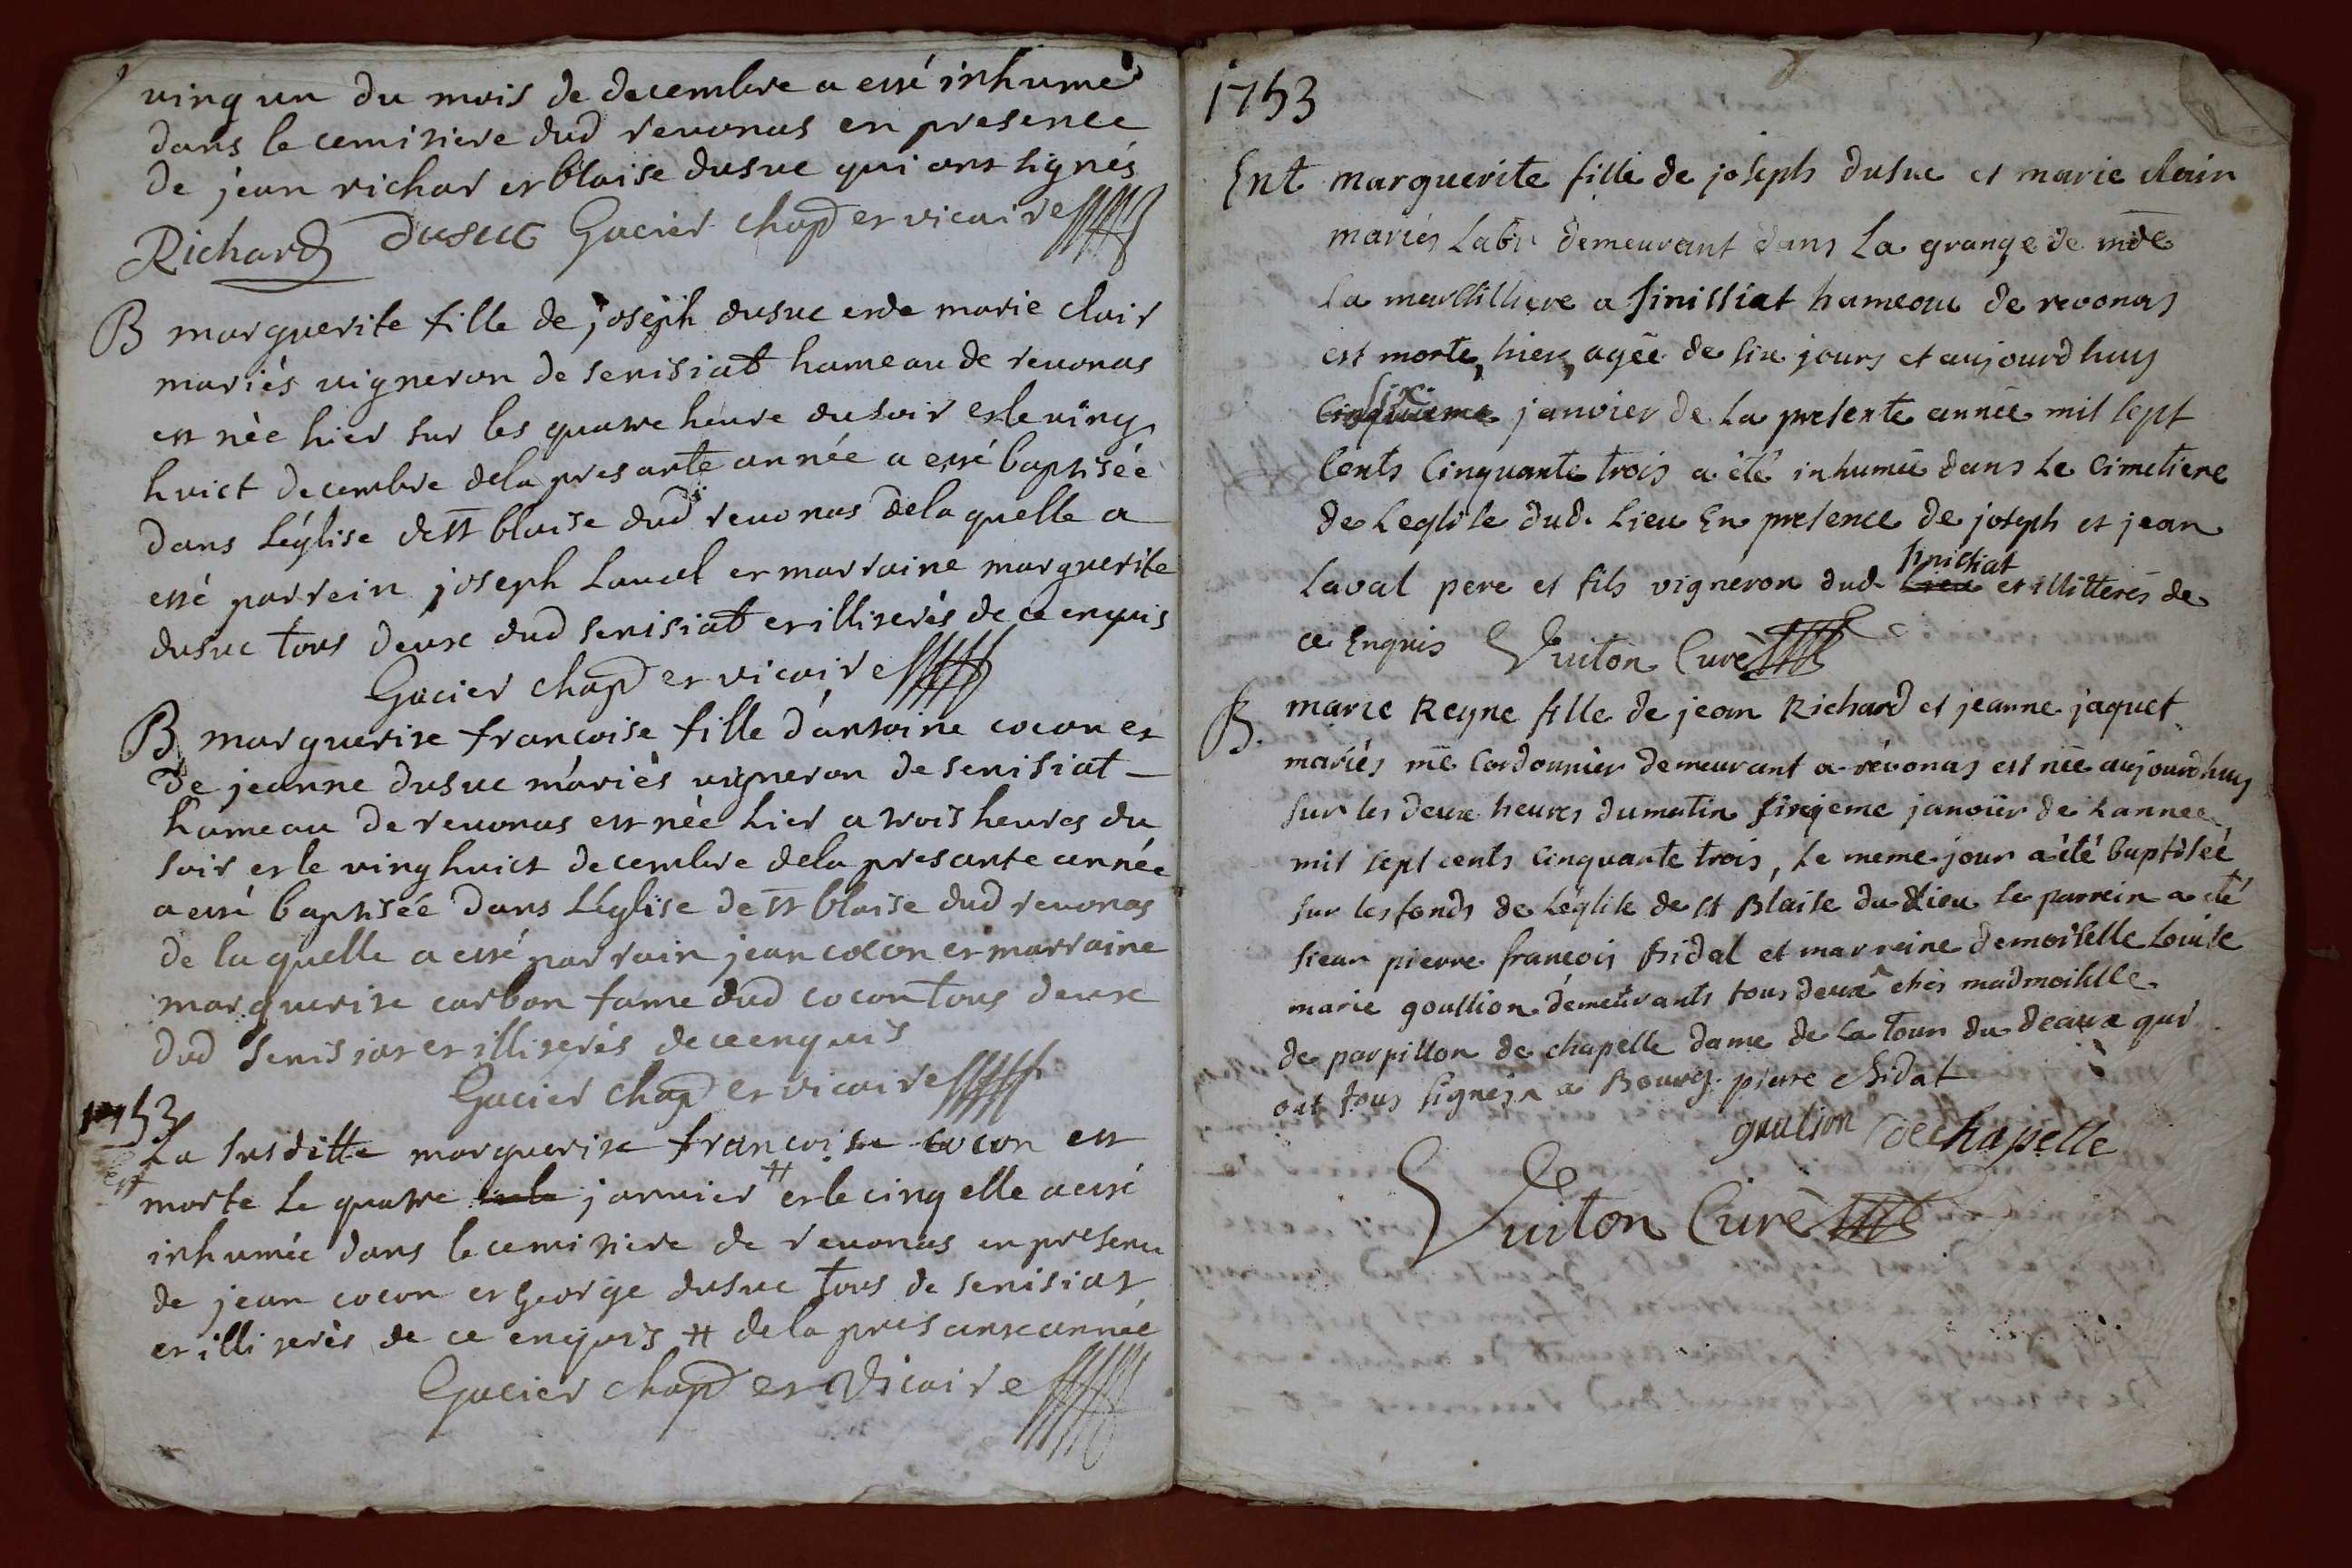 ving un du mois de decembre a etté inhumé
dans le cemitiere dud revonas en presence
de jean richar et blaise dusuc qui ont signés
Richard dusuc Gacier chap et vicaire
B marguerite fille de joseph dusuc et de marie clair
mariés vigneron de senisiat hameau de revonas
est née hier sur les quatre heure du soir et le ving
huict decembre dela presante année a etté baptisée
dans L'église de st blaise dud revonas de la quelle a
etté parrein joseph Laval et marraine marguerite
dusuc tous deux dud senisiat et illiterés de ce enquis
Gacier chap et vicaire
B marguerite francoise fille d'antoine cocon et
de jeanne dusuc mariés vigneron de senisiat
hameau de revonas est née hier a trois heures du
soir et le ving huict decembre dela presante année
a etté baptisée dans L'église de st blaise dud revonas
de la quelle a etté parrain jean cocon et marraine
marguerite carbon fame dud cocon tous deux
dud senisiat et illiterés de ce enquis
Gacier chap et vicaire
1753
La susditte marguerite francoise cocon est
morte le quatre janvier # et le cinq elle a etté
inhumée dans le cemitiere de revonas en presence
de jean cocon et George dusuc tous de senisiat
et illiterés de ce enquis # dela presante année
Gacier chap et vicaire
1753
Ent marguerite fille de joseph dusuc et marie clair
mariés Lab demeurant dans La grange de mde
La marsilliere a sinissiat hameau de revonas
est morte, hier, agée de six jours et aujourdhuy
six
cinquieme janvier de La presente année mil sept
cents cinquante trois a été inhumée dans Le cimetiere
de Leglise dud. Lieu En presence de joseph et jean
sinissiat
Laval pere et fils vigneron dud. Lieu et illitterés de
ce Enquis Vuiton Curé
B. marie Reyne fille de jean Richard et jeanne jaquet
mariés me Cordonnier demeurant a revonas est née aujourdhuy
sur les deux heures du matin sixieme janvier de Lannee
mil sept cents cinquante trois, Le meme jour a été baptisée
sur les fonds de Léglise de st Blaise du dLieu le parrein a été
sieur pierre francois sidal et marreine demoiselle Louise
marie goullion demeurants tous deux ^ chés madmoiselle
de parpillon de chapelle dame de La Tour du deaux qui
ont tous signés ^ a Bourg. pierre Chidat
goulion de chapelle
Vuiton Curé